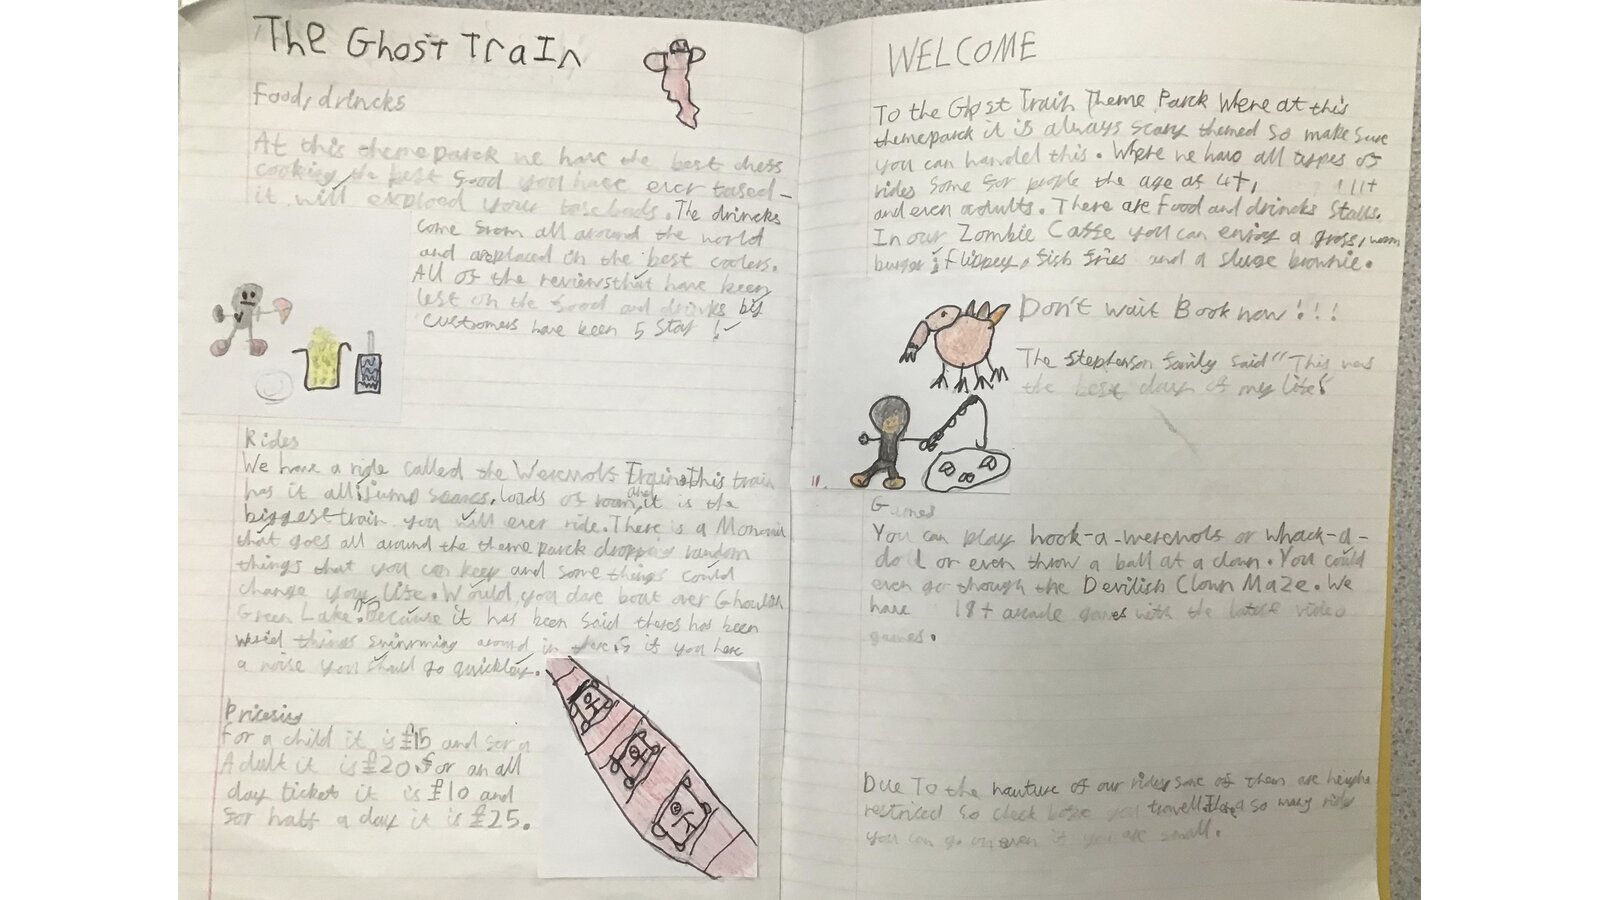 The Ghost Train
Food, drincks
At this themeparck we have the best chess
cooking the best food you have ever tased-
it will exploed your tasebads. The drincks
come from all around the world
and are placed in the best coolers.
All of the reviews that have been
left on the food and drinks by
customers have been 5 star!
Rides
We have a ride called the Werewolfs This train
has it all jump scares, loads of and it is the
biggest train you will ever ride. There is a
that goes all around the themeparck dropping random
things that you can keep and some things could
change your life. Would you dare boat over
Green Lake. Because it has been said theres has been
things swimming around in there if you here
a noise you should go quickley.
For a child it is £15 and for a
Adult it is £20. for an all
day ticket it is £10 and
for half a day it is £25.
WELCOME
To the Ghost Train Theme Parck Where at this
themeparck it is always scary themed so make sure
you can handel this. Where we have all types of
rides some for people the age of 4+, 11+
and even adults. There are Food and drincks Stalls.
In our Zombie Caffe you can enjoy a gross, worm
burger, Flippey, fish fries and a sluge brownie.
Don't wait Book now!!!
The Stephenson family said "This was
the best day of my life"
Games
You can play hook-a-werewolfs or whack-a-
doll or even throw a ball at a clown. You could
even go though the Devilish Clown Maze. We
have 18+ arcade games with the latest video
games.
Due To the nauture of our rides some of them are
restriced So check before you so many rides
you can go on even if you are small.